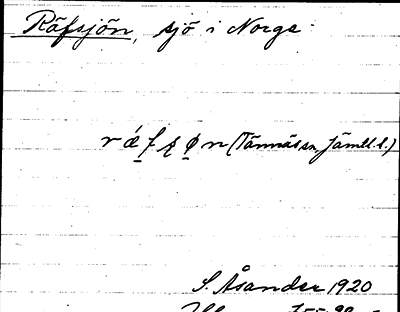 Räfsjön, sjö i Norge.
ræ̀fʂøn (Tännäs sn, Jämtl. l.)
S. Åsander 1920